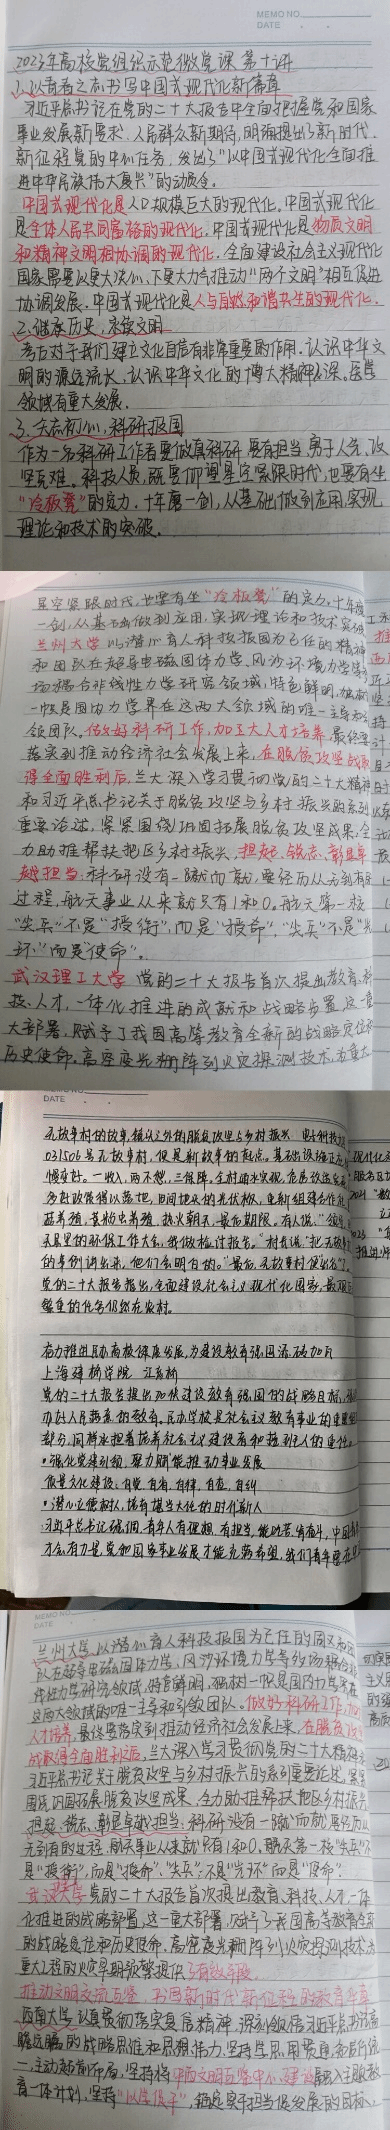 MEMO NO.
DATE
2023年高校党组织示范微党课 第十讲
1.以青春之志书写中国式现代化新篇章
习近平总书记在党的二十大报告中全面把握党和国家
事业发展新要求、人民群众新期待,明确提出了新时代
新征程党的中心任务,发出了“以中国式现代化全面推
进中华民族伟大复兴”的动员令。
中国式现代化是人口规模巨大的现代化。中国式现代化
是全体人民共同富裕的现代化。中国式现代化是物质文明
和精神文明相协调的现代化。全面建设社会主义现代化
国家需要以更大决心、下更大力气推动“两个文明”相互促进
协调发展。中国式现代化是人与自然和谐共生的现代化。
2.继承历史,赓续文明
考古对于我们建立文化自信有非常重要的作用。认识中华文
明的源远流长、认识中华文化的博大精深。医学
领域有重大发展。
3.矢志初心,科研报国
作为一名科研工作者要做真科研,要有担当,勇于人先,攻
坚克难。科技人员,既要仰望星空紧跟时代,也要有坐
“冷板凳”的定力。十年磨一剑,从基础做到应用,实现
理论和技术的突破。
星空紧跟时代,也要有坐“冷板凳”的定力。十年磨
一剑,从基础做到应用,实现理论和技术突破
兰州大学 以潜心育人科技报国为己任的
和团队在超导电磁固体力学、风沙环境力学等
场耦合非线性力学研究领域,特色鲜明,独树
一帜是国内力学界在这两大领域的唯一主导和引
领团队。做好科研工作,加大人才培养,最终要
落实到推动经济社会发展上来,在脱贫攻坚战取
得全面胜利后,兰大深入学习贯彻党的二十大精神
和习近平总书记关于脱贫攻坚与乡村振兴的系列
重要论述,紧紧围绕巩固拓展脱贫攻坚成果,全
力助推帮扶地区乡村振兴,担起、锐志、彰显卓
越担当。科研没有一蹴而就,要经历从无到有的
过程,航天事业从来就只有1和0。航天第一校
“尖兵”不是“授衔”,而是“授命”,“尖兵”不是“光
环”而是“使命”。
武汉理工大学 党的二十大报告首次提出教育、科
技、人才,一体化推进的成就和战略部署,这一重
大部署,赋予了我国高等教育全新的战略定位和
历史使命。高密度光栅阵列火灾探测技术,为重大
DATE
无故事村的故事,镜头之外的脱贫攻坚与乡村振兴
031506号无故事村,但是新故事的起点。基础设施正在
慢变好。一收入,两不愁,三保障,全村
的事例讲出来,他们会明白的。
党的二十大报告指出,全面建设社会主义现代化国家,最艰巨
繁重的任务仍然在农村。
奋力推进民办高校高质量发展,为建设教育强国添砖加瓦
上海建桥学院 江彦桥
党的二十大报告提出加快建设教育强国的战略目标,
办好人民满意的教育。民办学校是社会主义教育事业的重要组
部分,同样承担着培养社会主义建设者和接班人的重任。
•强化党建引领,聚力赋能推动事业发展
质量文化建设:自觉、自省、自律、自查、自纠
•潜心立德树人,培育担当大任的时代新人
习近平总书记强调,青年人有理想、有担当,能吃苦、肯奋斗,中国
才会有力量,党和国家事业发展才能充满希望,我们青年要在
MEMO NO.
DATE
兰州大学 以潜心育人科技报国为己任的周又和
队在超导电磁固体力学、风沙环境力学等多场耦合非
线性力学研究领域,特色鲜明,独树一帜是国内力学界在
这两大领域的唯一主导和引领团队。做好科研工作,加大
人才培养,最终要落实到推动经济社会发展上来,在脱贫攻坚
战取得全面胜利后,兰大深入学习贯彻党的二十大精神和
习近平总书记关于脱贫攻坚与乡村振兴的系列重要论述,紧紧
围绕巩固拓展脱贫攻坚成果,全力助推帮扶地区乡村振兴,
担起、锐志、彰显卓越担当。科研没有一蹴而就,要经历从
无到有的过程,航天事业从来就只有1和0。航天第一校“尖兵”不
是“授衔”,而是“授命”,“尖兵”不是“光环”而是“使命”。
武汉理工大学 党的二十大报告首次提出教育、科技、人才,一体
化推进的战略部署,这一重大部署,赋予了我国高等教育全新
的战略定位和历史使命。高密度光栅阵列火灾探测技术,为
重大工程的火灾早期预警提供了有效手段。
推动文明交流互鉴 书写新时代新征程的教育华章
西南大学 认真贯彻落实复信精神,深刻领悟习近平总书记高
瞻远瞩的战略思维和思想伟力,坚持学思用贯通、知行统
一,主动超前布局,坚持将中西文明互鉴中心建设融入主题教
育一体计划,坚持“以学促干”,锚定实干担当促发展的目标,